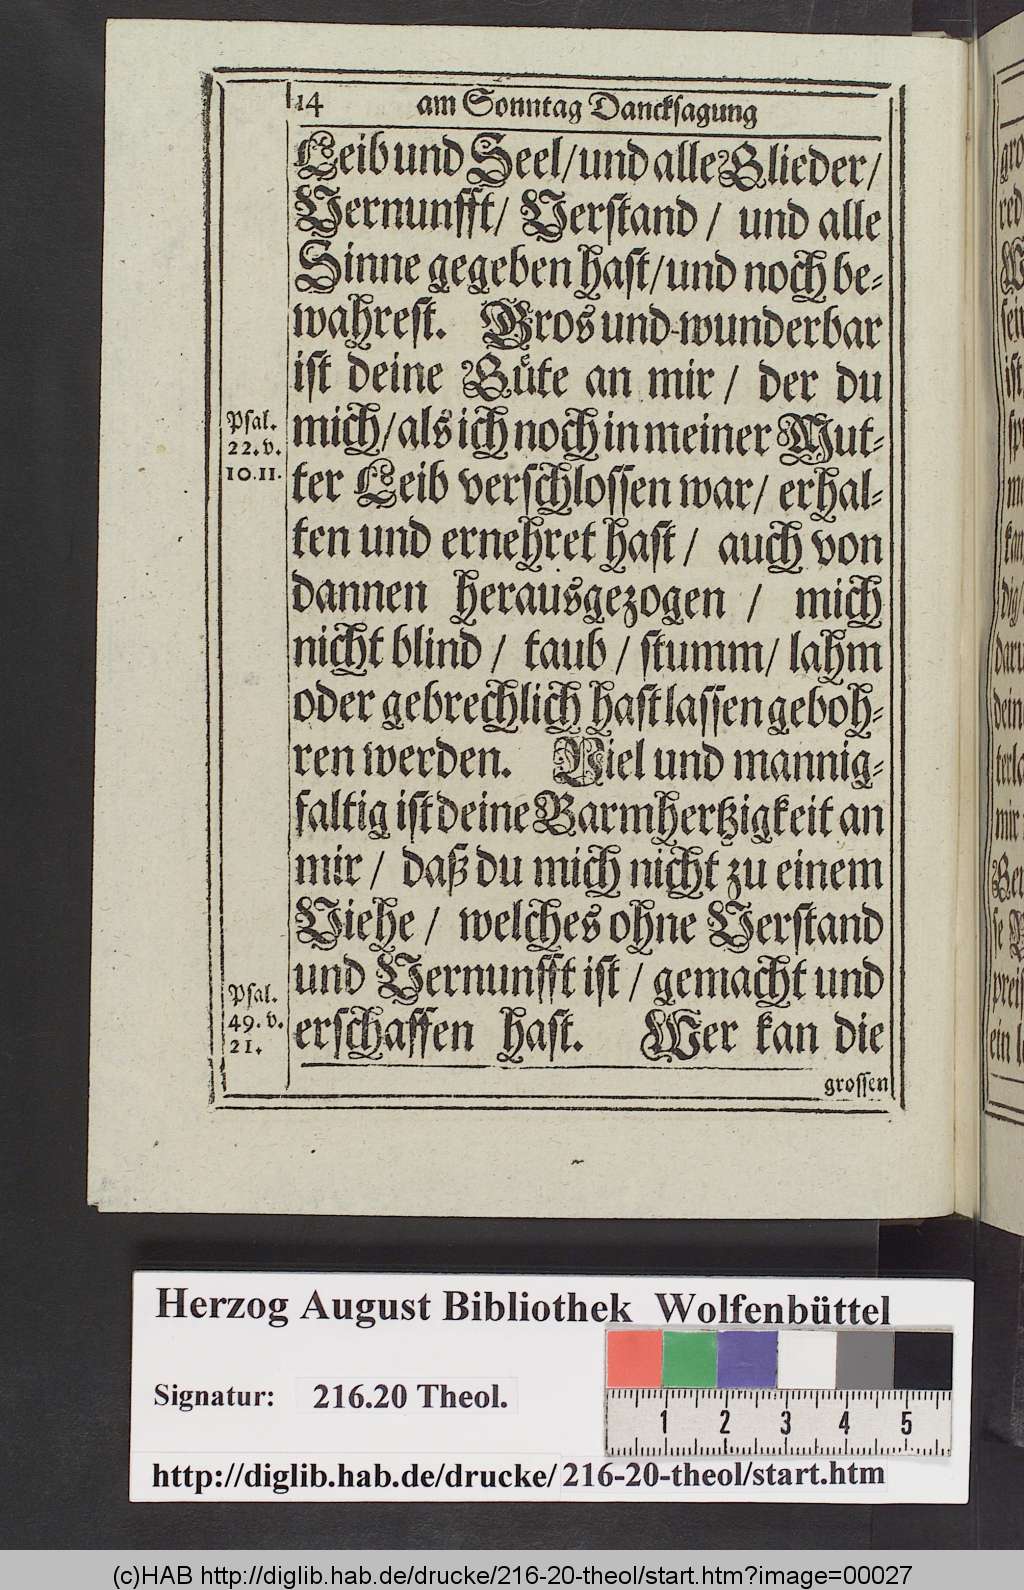 14 am Sonntag Dancksagung
Leib und Seel/ und alle Glieder/
Vernunfft/ Verstand/ und alle
Sinne gegeben hast/ und noch be-
wahrest. Gros und wunderbar
ist deine Güte an mir/ der du
Psal.
22. v.
10. 11.
mich/ als ich noch in meiner Mut-
ter Leib verschlossen war/ erhal-
ten und ernehret hast/ auch von
dannen herausgezogen/ mich
nicht blind/ taub/ stumm/ lahm
oder gebrechlich hast lassen geboh-
ren werden. Viel und mannig-
faltig ist deine Barmhertzigkeit an
mir/ daß du mich nicht zu einem
Viehe/ welches ohne Verstand
und Vernunfft ist/ gemacht und
Psal.
49. v.
21.
erschaffen hast. Wer kan die
grossen
Herzog August Bibliothek Wolfenbüttel
Signatur: 216.20 Theol.
1 2 3 4 5
http://diglib.hab.de/drucke/216-20-theol/start.htm
(c)HAB http://diglib.hab.de/drucke/216-20-theol/start.htm?image=00027